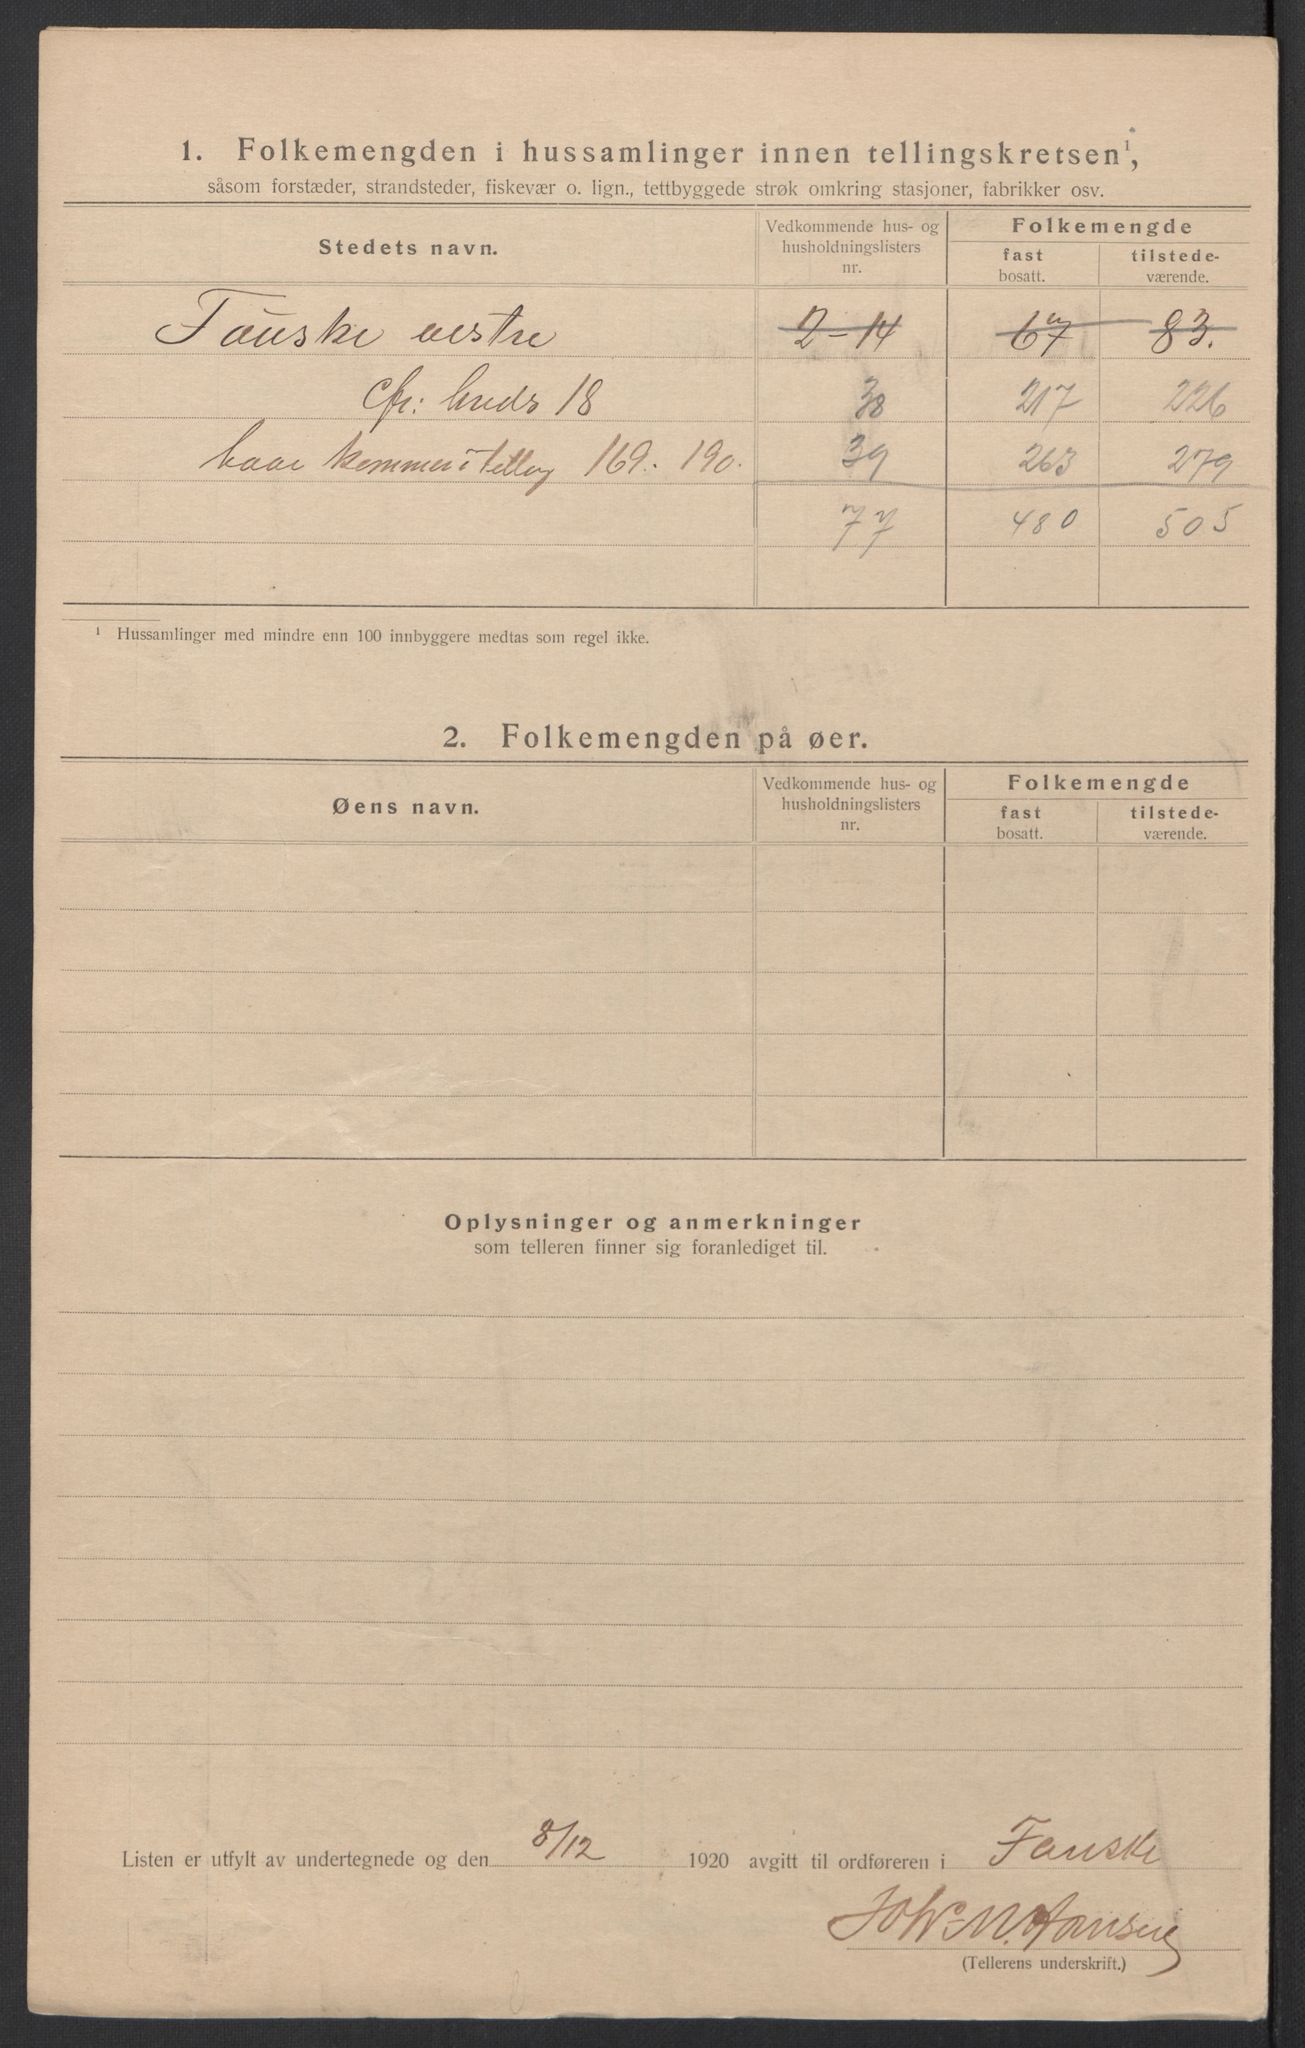 1. Folkemengden i hussamlinger innen tellingskretsen¹,
såsom forstæder, strandsteder, fiskevær o. lign., tettbyggede strøk omkring stasjoner, fabrikker osv.
Stedets navn. Vedkommende hus- og husholdningslisters nr. Folkemengde
fast bosatt. tilstede-værende.
Fauske vestre 2-14 67 83.
cfr: 18 38 217 226
169. 190. 39 263 279
77 480 505
¹ Hussamlinger med mindre enn 100 innbyggere medtas som regel ikke.
2. Folkemengden på øer.
Øens navn. Vedkommende hus- og husholdningslisters nr. Folkemengde
fast bosatt. tilstede-værende.
Oplysninger og anmerkninger
som telleren finner sig foranlediget til.
Listen er utfylt av undertegnede og den 8/12 1920 avgitt til ordføreren i Fauske
Hansen
(Tellerens underskrift.)